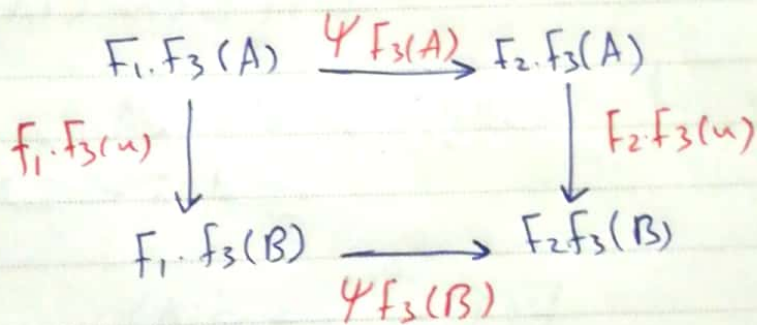 F₁.F₃(A) Ψ F₃(A) F₂.F₃(A)
F₁.F₃(u) F₂.F₃(u)
F₁.F₃(B) F₂F₃(B)
Ψ F₃(B)